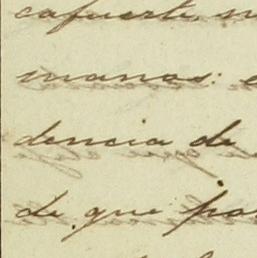 cafuerte
manas:
dencia de
de que